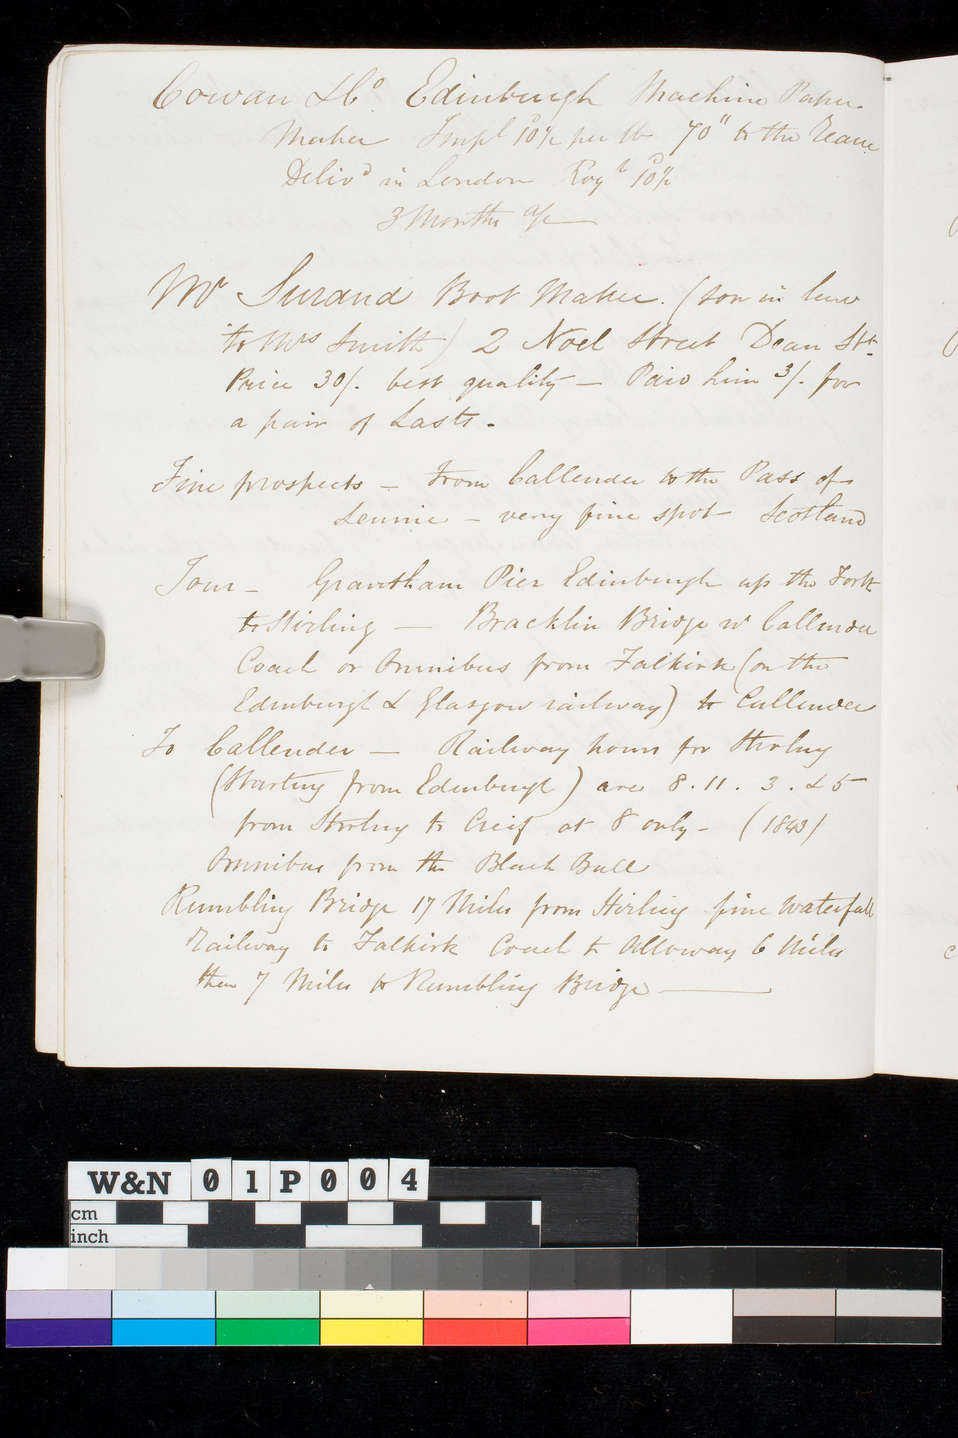 Cowan & Co Edinburgh Machine Paper
Maker Impl 10½ per lb 70" to the Ream
Delivd in London Royl 10½
3 Months a/c
Mr Surand Boot Maker. (son in law
to Mrs Smith) 2 Noel Street Dean St.
Price 30/. best quality — Paid him 3/. for
a pair of Lasts.
Fine prospects — From Callender to the Pass of
Lennie — very fine spot Scotland
Tour — Grantham Pier Edinburgh up the Forth
to Stirling — Bracklin Bridge nr Callender
Coach or Omnibus from Falkirk (on the
Edinburgh & Glasgow railway) to Callender
To Callender — Railway hours for Stirling
(Starting from Edinburgh) are 8. 11. 3. & 5
from Stirling to Creif at 8 only — (1843)
Omnibus from the Black Bull
Rumbling Bridge 17 Miles from Stirling fine Waterfall
Railway to Falkirk Coach to Alloway 6 Miles
then 7 Miles to Rumbling Bridge —
W&N 01P004
cm
inch